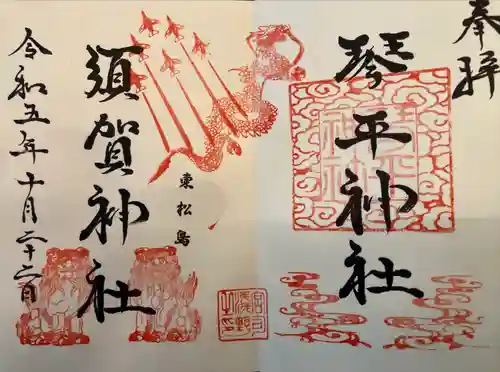 奉拝
琴平神社
東松島
須賀神社
令和五年十月二十二日